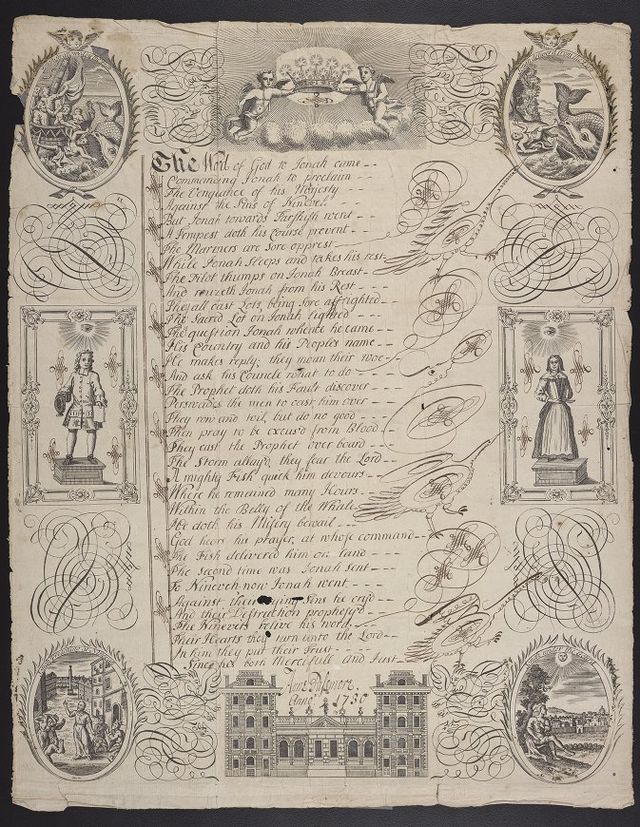 The Word of God to Jonah came - -
Commanding Jonah to proclaim - - -
The Vengeance of his Majesty - - -
Against the Sins of Nineveh - - -
But Jonah towards Tarshish went - -
A Tempest doth his Course prevent - -
The Mariners are Sore opprest - - -
While Jonah Sleeps and takes his rest
The Pilot thumps on Jonah Breast -
And rouzeth Jonah from his Rest - -
They all cast Lots, being Sore affrighted - -
The Sacred Lot on Jonah lighted - - -
The question Jonah whence he came - -
His Country and his Peoples name - -
He makes reply; they moan their woe -
And ask his Councle what to do - - -
The Prophet doth his Fault discover - -
Perswades the men to cast him over - -
They row and toil, but do no good - -
Then pray to be excus'd from Blood - -
They cast the Prophet over board - - -
The Storm allay'd, they fear the Lord - -
A mighty Fish quick him devours - -
Where he remained many Hours - -
Within the Belly of the Whale - -
He doth his Misery bewail - - -
God hears his prayer, at whose command - -
The Fish delivered him on land - - -
The Second time was Jonah Sent - - -
To Nineveh now Jonah went - - -
Against their Sins he cry'd
And their Destruction prophesy'd
The Ninevets
Their Hearts they turn unto the Lord - -
In him they put their Trust - - -
Since he's both Mercifull and Just - -
Anno 1736